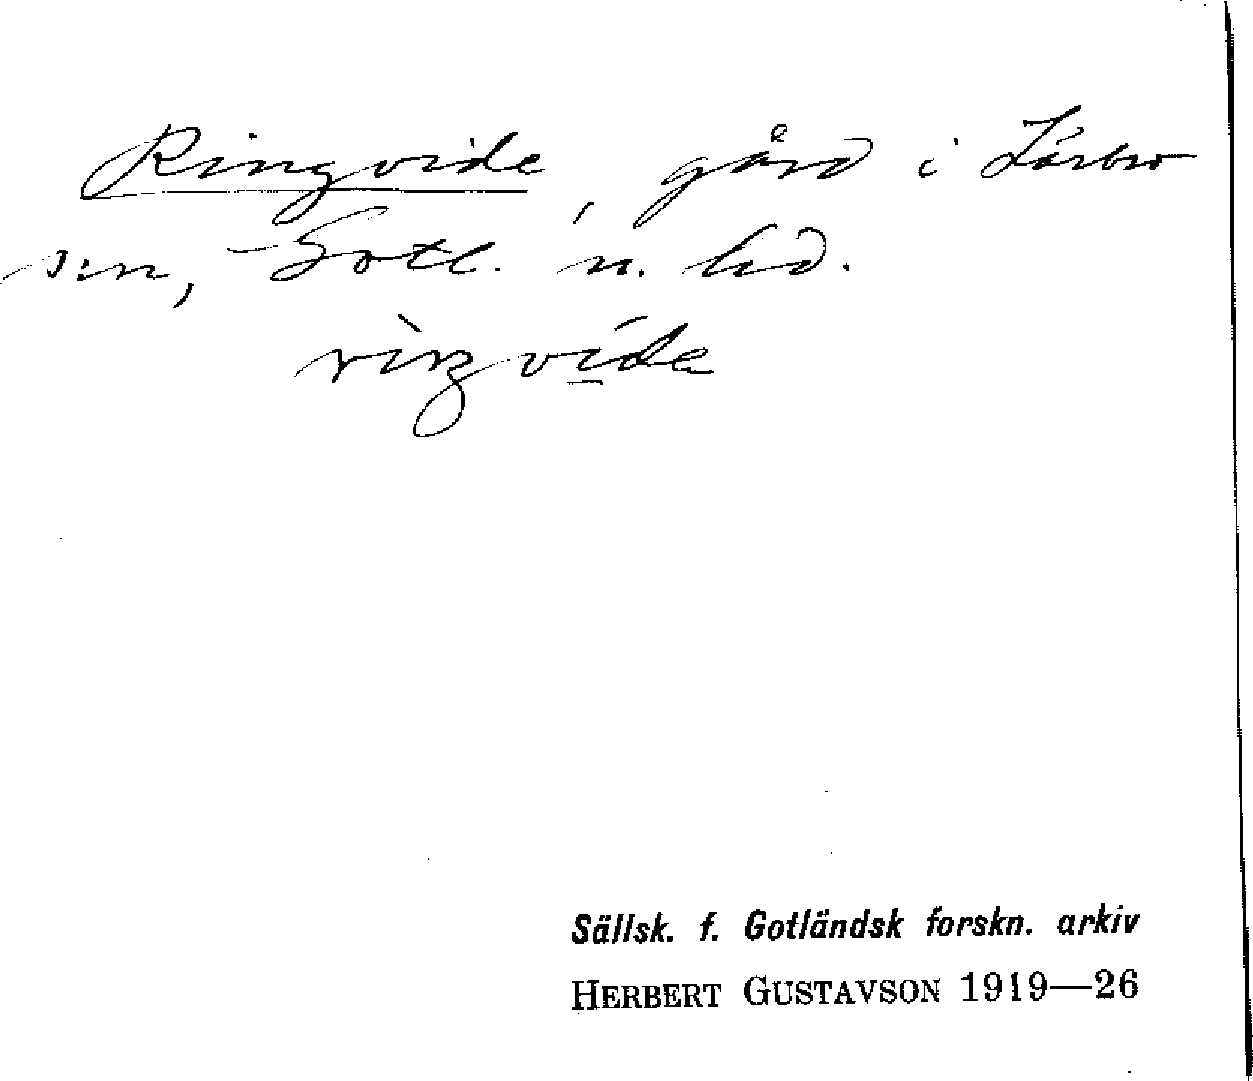 Ringvide, gård i Lärbro
s:n, Gotl. n. hd.
rìŋví̲da
Sällsk. f. Gotländsk forskn. arkiv
HERBERT GUSTAVSON 1919—26